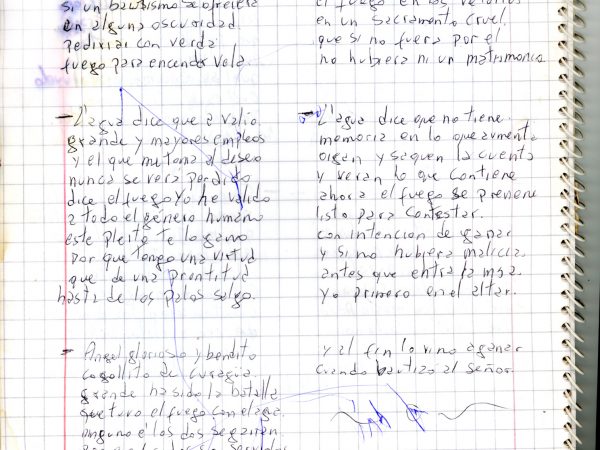 si un bautismo se ofreciera
en alguna oscuridad
pedirian con verda
fuego para encende vela.
- L'agua dice que a valio
grande y mayores empleos
y el que me toma al deseo
nunca se vera perdido
dice el fuego Yo he valido
a todo el género humano
este pleito te lo gano
por que tengo una virtud
que de una prontitud
hasta de los palos salgo.
- Angel glorioso y bendito
cogollito de
grande ha sido la batalla
que tuvo el fuego con el agua
ninguno e los dos
el fuego en los
en un Sacramento Cruel,
que si no fuera por el
no hubiera ni un matrimonio
- L'agua dice que no tiene
memoria en lo que aumenta
oigan y saquen la cuenta
y veran lo que contiene
ahora el fuego se previene
listo para Contestar.
con intencion de ganar
y si no hubiera malicia.
antes que entra la misa.
Yo primero en el altar.
y al fin lo vino a ganar
cuando bautizo al Señor.